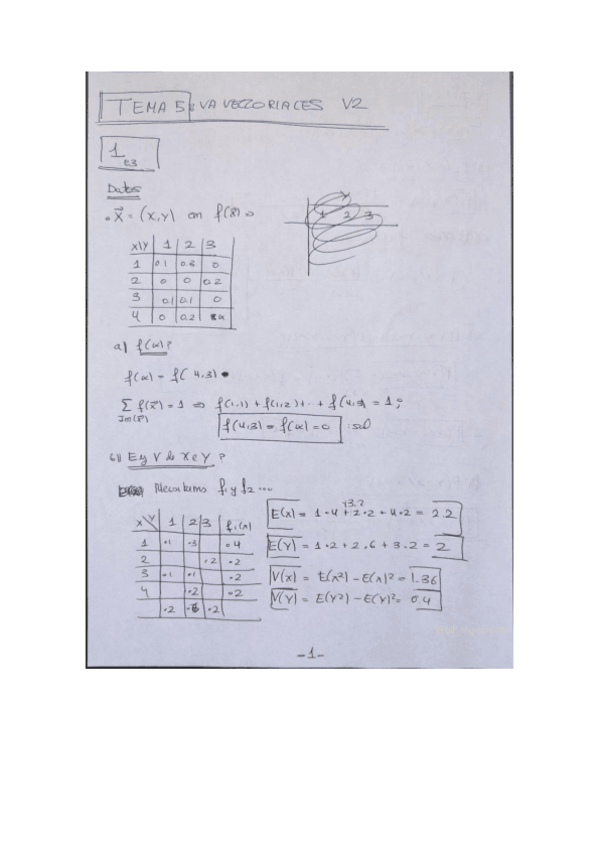 TEMA 5: VA VECTORIALES V2
1 E3
Datos
• X⃗ = (X,Y) con f(x⃗) =>
Y
1 2 3
X\Y 1 2 3
1 0.1 0.3 0
2 0 0 0.2
3 0.1 0.1 0
4 0 0.2 α
a) f(α)?
f(α) = f(4,3)
∑ f(x⃗) = 1 => f(1,1) + f(1,2) + ... + f(4,3) = 1;
Im(x⃗)
f(4,3) = f(α) = 0 :sol
b) E y V de X e Y?
Necesitamos f₁ y f₂ ...
X\Y 1 2 3 f₁(x)
1 .1 .3 .4
2 .2 .2
3 .1 .1 .2
4 .2 .2
.2 .6 .2
E(X) = 1·.4 + 2·.2 + 4·.2 = 2.2
+3.2
E(Y) = 1·.2 + 2·.6 + 3·.2 = 2
V(X) = E(X²) - E(X)² = 1.36
V(Y) = E(Y²) - E(Y)² = 0.4
-1-